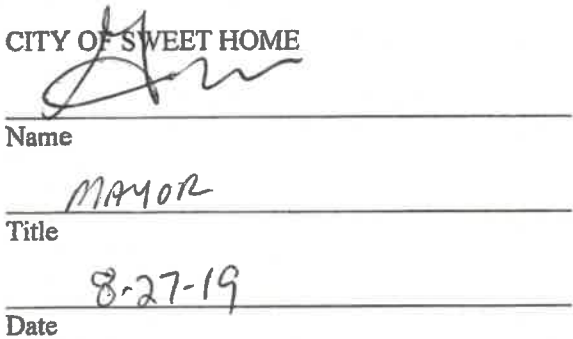 CITY OF SWEET HOME
Name
MAYOR
Title
8-27-19
Date